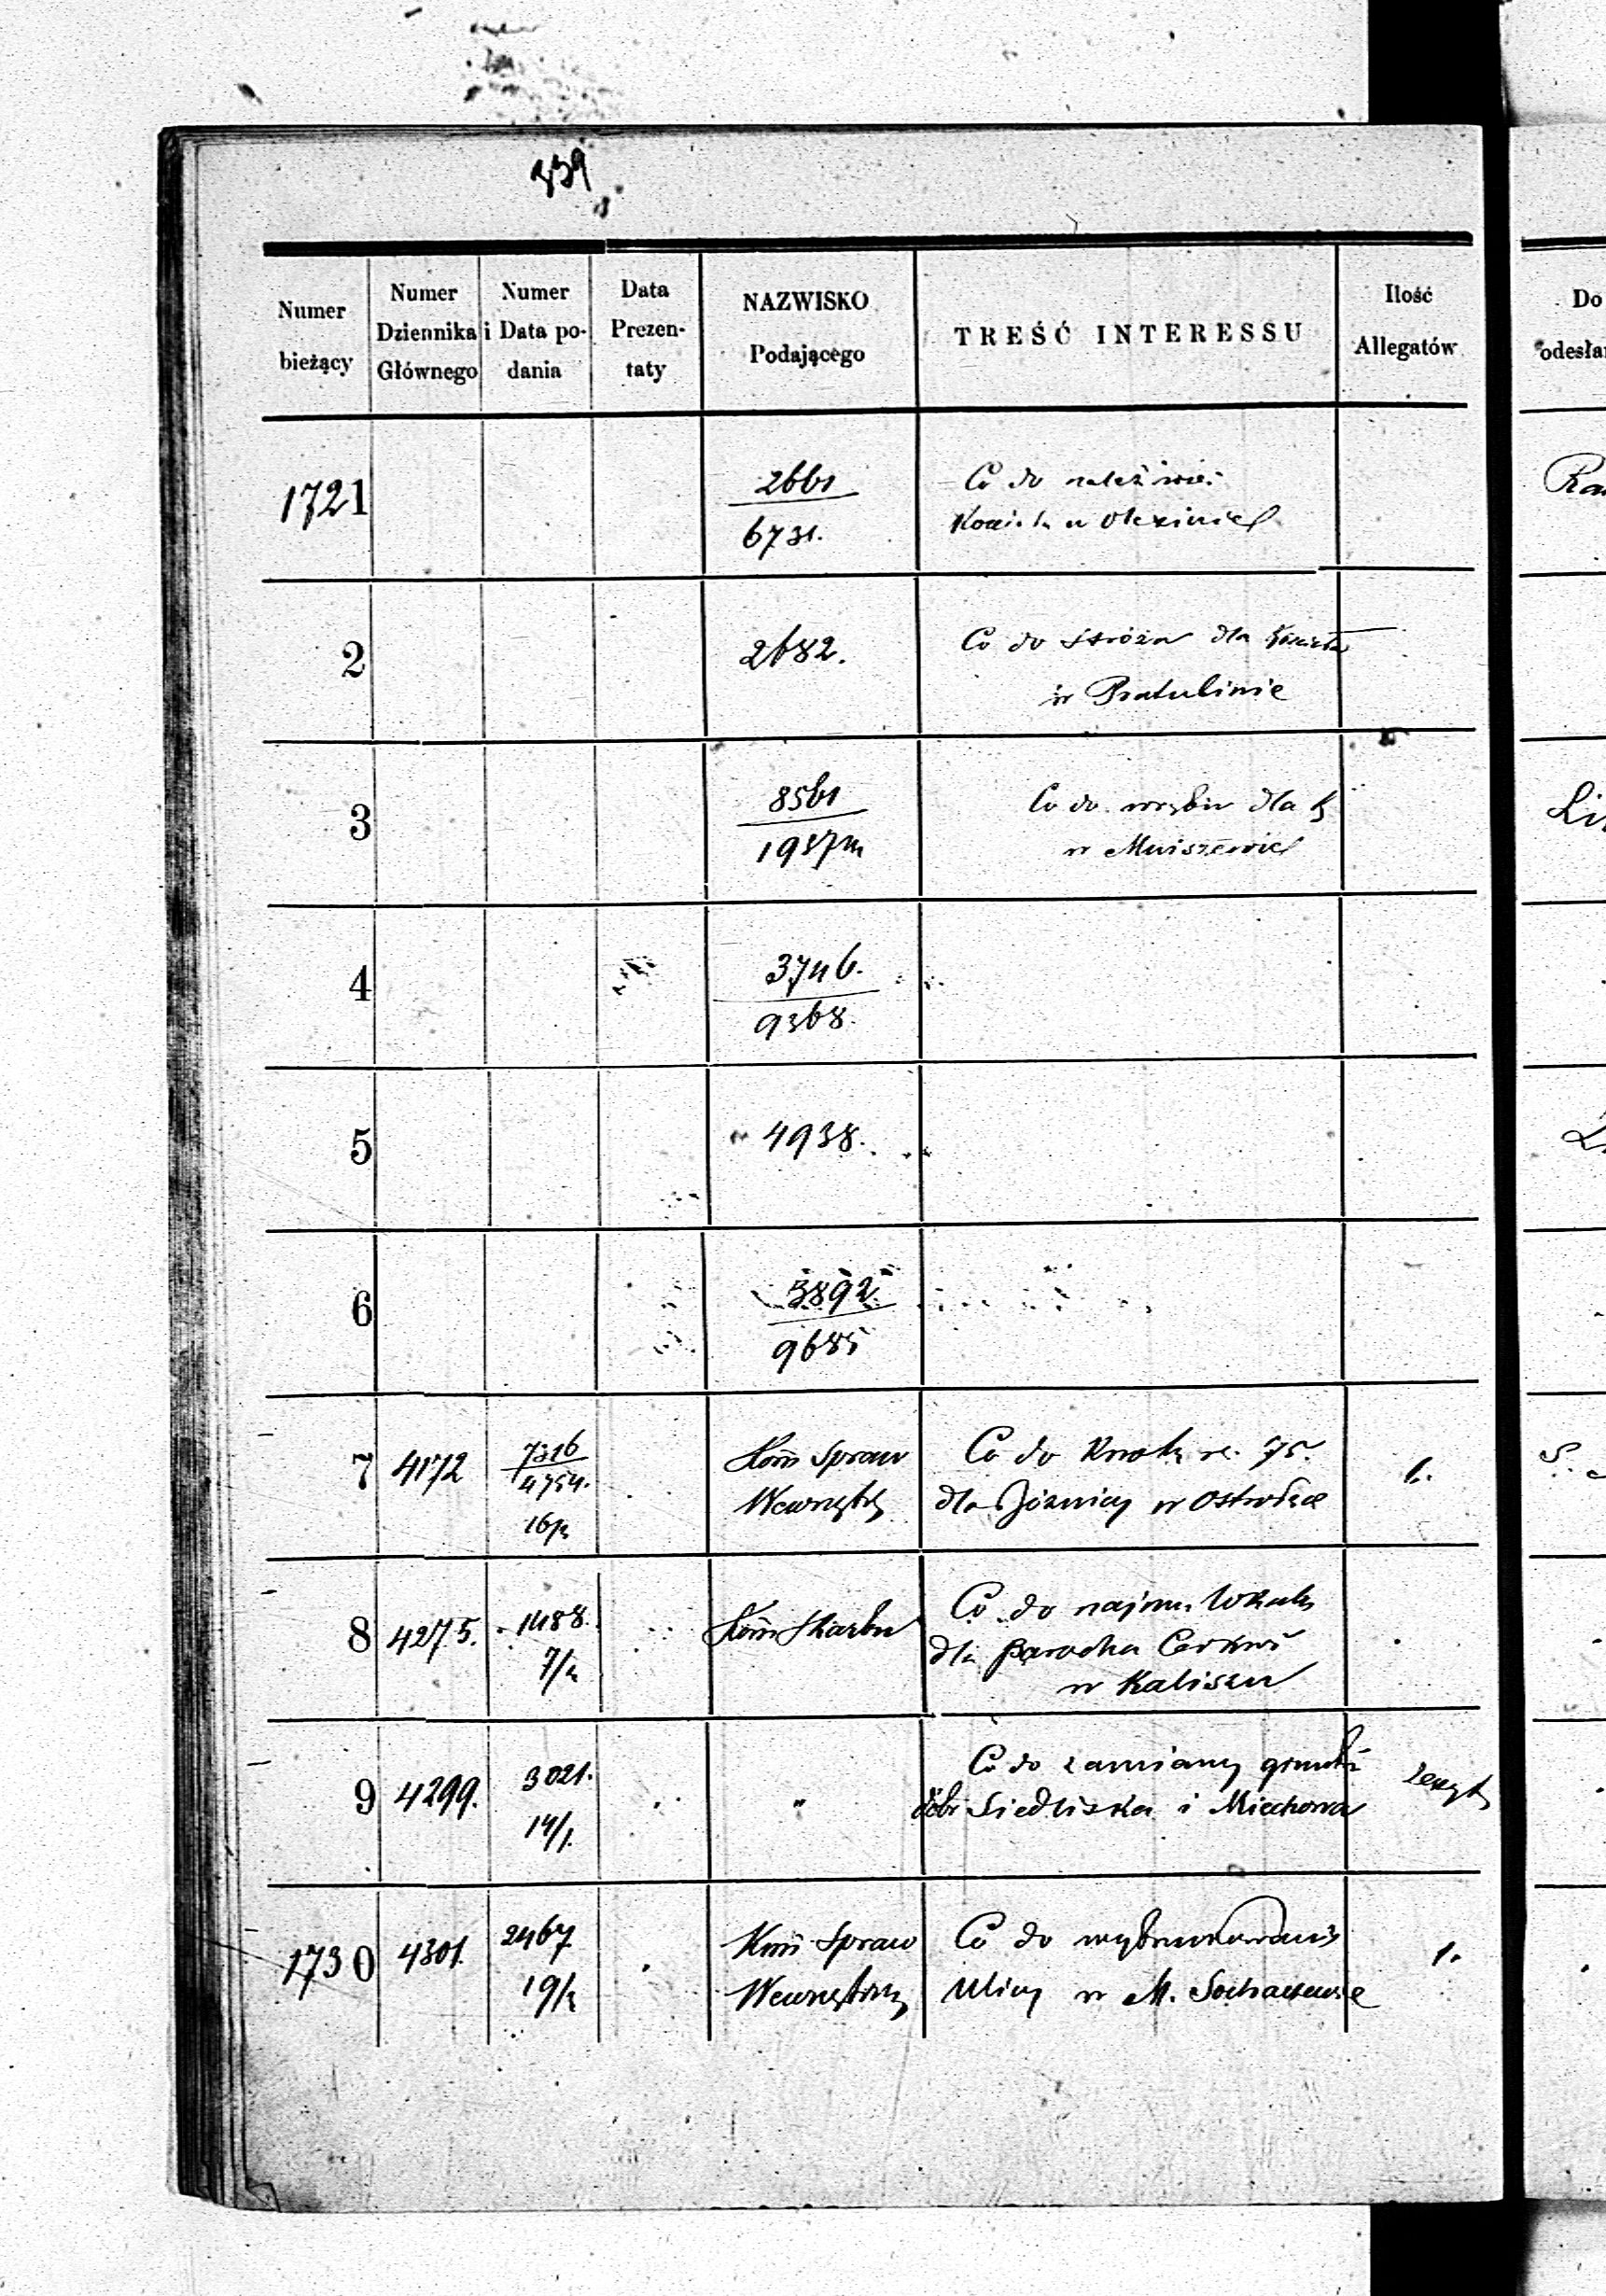 339
Numer bieżący
Numer Dziennika Głównego
Numer i Data podania
Data Prezentaty
NAZWISKO Podającego
TREŚĆ INTERESSU
Ilość Allegatów
Do
odesła
1721
2661
6731.
Co do
w
2
2682.
Co do stróża dla Kościoła
w Pratulinie
3
8561
Co do dla
w Mniszewie
4
3746.
9368.
5
4938.
6
3892.
9685
7
4172
7316
4754.
Kom Spraw
Wewnętrz
Co do Kwoty rs. 75.
dla w
1.
8
4275.
1488.
Kom Skarbu
Co do najmu lokalu
dla parocha Cerkwi
w Kaliszu
9
4299.
3021.
14/1.
"
Co do zamiany gruntów
dóbr Siedliska i Miechowa
1730
4301.
2467
Kom Spraw
Wewnętrzn
Co do wybrukowania
Ulicy w M. Sochaczewie
1.